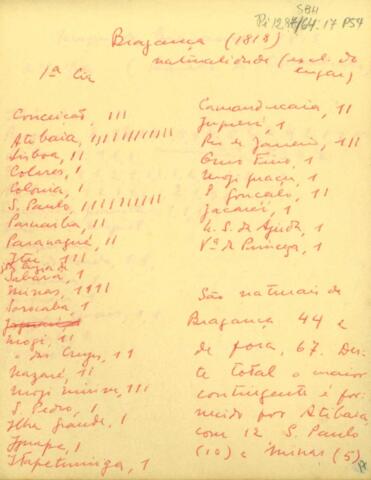 SBH
Pi 128 P54
Bragança (1818)
naturalidade (excl. do
lugar)
1ª Cia
Conceição, III
Atibaia, IIIIIIIIIIII
Lisboa, II
Colares, I
Colonia, I
S. Paulo, IIIIIIIIII
Parnaiba, II
Paranaguá, II
Itu, III
Sabará, 1
Minas, IIII
Sorocaba, 1
Mogi, 11
" das Cruzes, 11
Nazaré, 11
Mogi mirim, III
S. Pedro, I
Ilha Grande, I
Iguape, I
Itapetininga, 1
Camanducaia, 11
Jaguari, 1
Rio de Janeiro, III
Ouro Fino, 1
Mogi guaçu, 1
S. Gonçalo, 11
Jacareí, 1
N. S. da Ajuda, 1
Vª da Princeza, 1
São naturais de
Bragança 44 e
de fora, 67. Des-
te total o maior
contingente é for-
necido por Atibaia
com 12 S. Paulo
(10) e Minas (5)